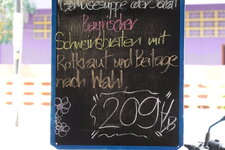 Gemüsesuppe oder Salat
Bayrischer
Schweinsbraten mit
Rotkraut und Beilage
nach Wahl
209